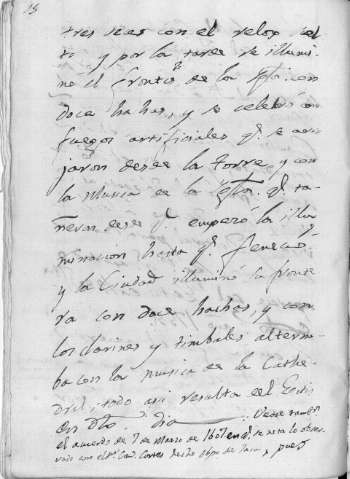 tres veces con el relox, 
y por la tarde se illumi-
nó el frontis de la Igla. con
doce hachas, y se celebró con
fuegos artificiales q. se arro-
jaron desde la torre, y con
la Musica de la q. ta-
ñeron desde q. empezó la illu-
minacion hasta q. feneció.
y la Ciudad illuminó la fronte
ra con doce hachos, y con
los clarines y timbales alterna-
ba con la musica de la Cathe-
dral; todo asi resulta del
en dho. dia Vease tambn.
el acuerdo de 7 de Marzo de 1607 en q. se